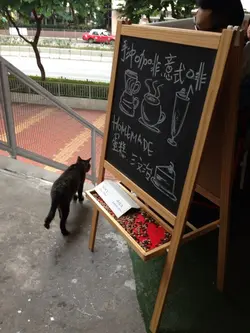 手沖咖啡 意式咖啡
HOMEMADE
蛋糕 三文治